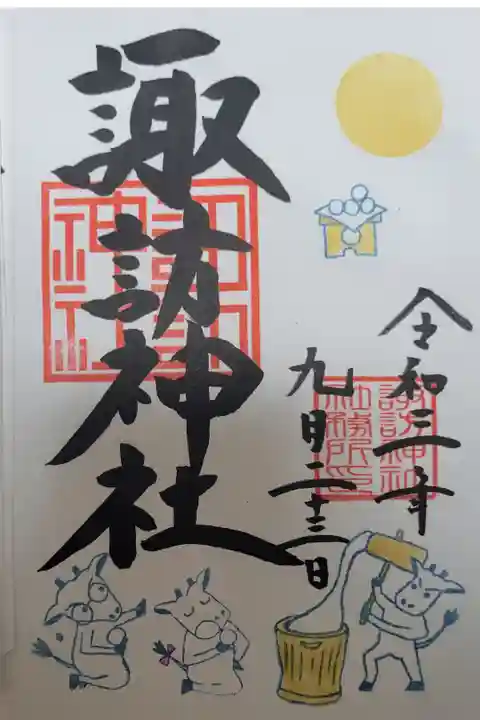 令和三年
九月二十三日
諏訪神社
諏訪神社
社務所印